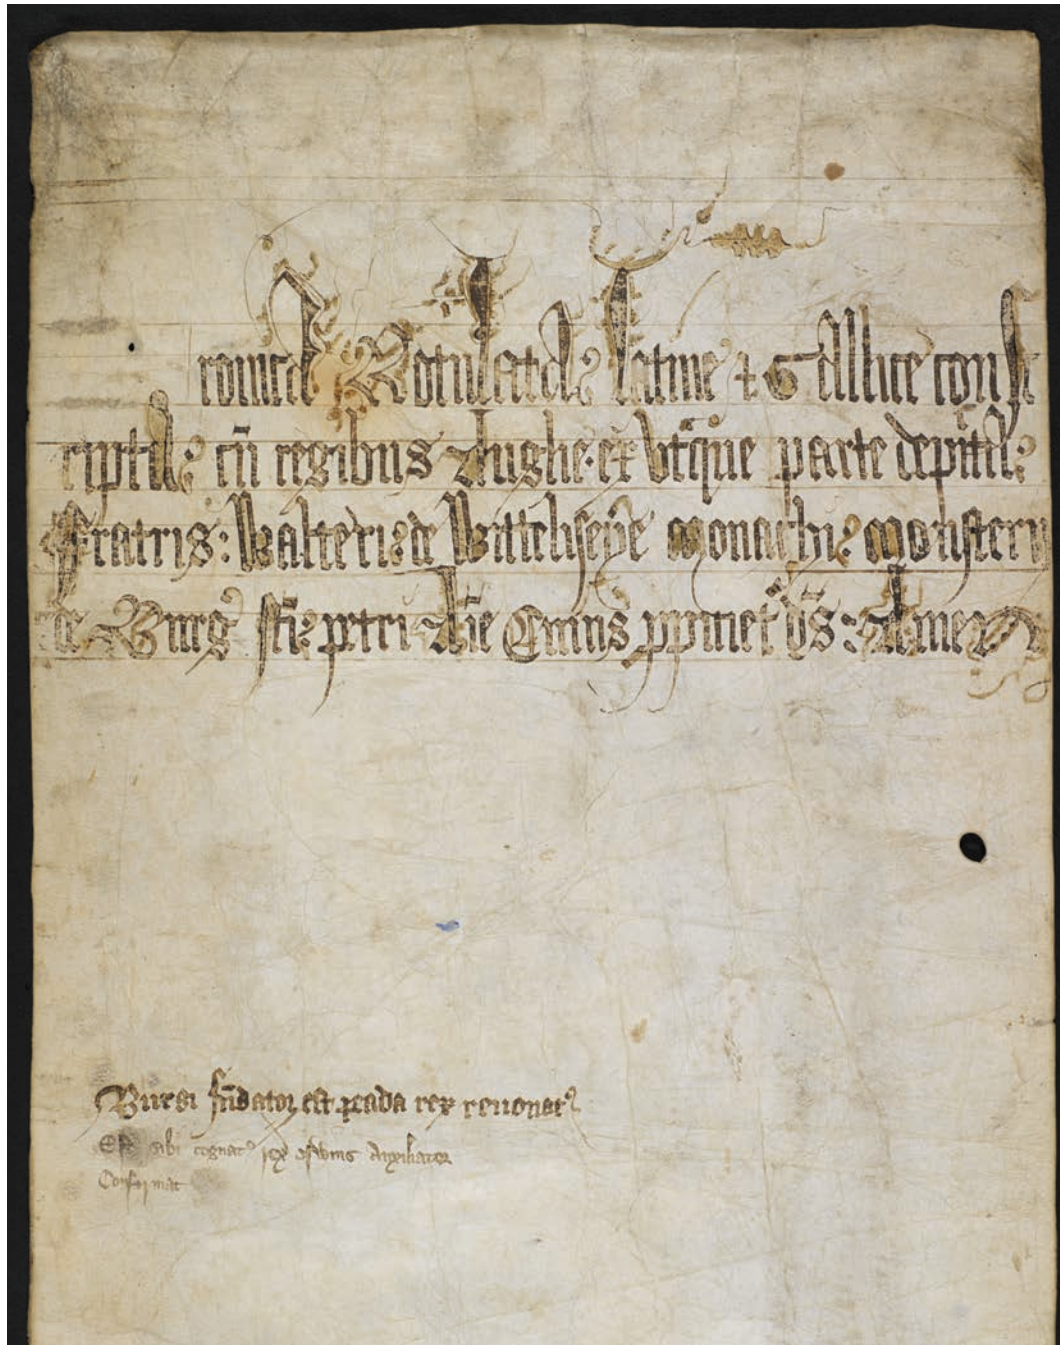 ronica Rotulata: latine & Gallice const
ripta: cū regibus Anglie. ex vtͣque parte depicta:
Fratris: Walteri: de Wittelseye monachi: monasterii
de Burgͦ sc̄i: petri Aīe Cuius ꝓpiciet᷑ ds̄: Amen
Burgi fūdator est peada rex
Est sibi cognatꝰ rex osWius Auxiliator
Confirmat